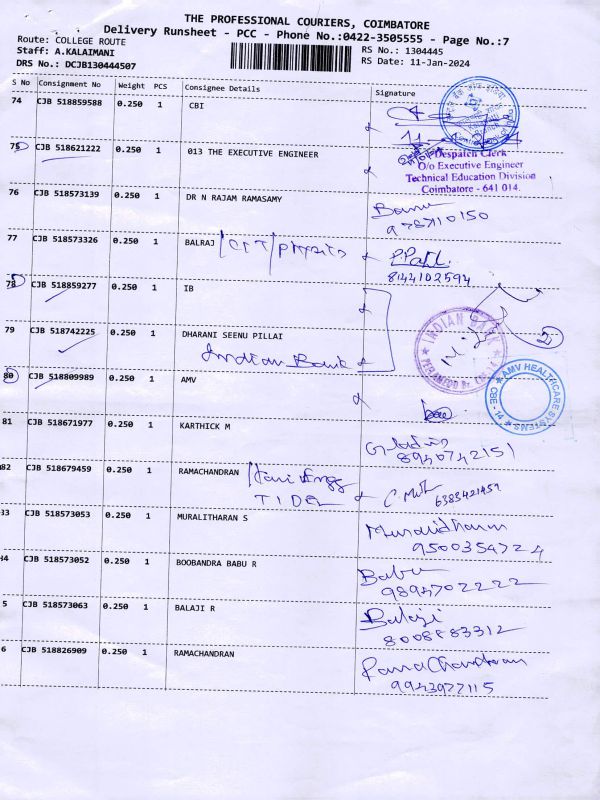 THE PROFESSIONAL COURIERS, COIMBATORE
Delivery Runsheet - PCC - Phone No.:0422-3505555 - Page No.:7
Route: COLLEGE ROUTE
RS No.: 1304445
Staff: A.KALAIMANI
RS Date: 11-Jan-2024
DRS No.: DCJB130444507
S No Consignment No Weight PCS Consignee Details Signature
74 CJB 518859588 0.250 1 CBI
75 CJB 518621222 0.250 1 013 THE EXECUTIVE ENGINEER
Despatch Clerk
O/o Executive Engineer
Technical Education Division
Coimbatore - 641 014.
76 CJB 518573139 0.250 1 DR N RAJAM RAMASAMY
77 CJB 518573326 0.250 1 BALRAJ /CIT/physics
8144102594
78 CJB 518859277 0.250 1 IB
79 CJB 518742225 0.250 1 DHARANI SEENU PILLAI
Indian Bank
INDIAN BANK
80 CJB 518809989 0.250 1 AMV
AMV HEALTHCARE SYSTEMS
CBE - 14
81 CJB 518671977 0.250 1 KARTHICK M
8940742151
82 CJB 518679459 0.250 1 RAMACHANDRAN
TIDEL
6383421459
33 CJB 518573053 0.250 1 MURALITHARAN S
Muralidharan
9500354724
34 CJB 518573052 0.250 1 BOOBANDRA BABU R
Babu
9894702222
5 CJB 518573063 0.250 1 BALAJI R
Balaji
8008883312
6 CJB 518826909 0.250 1 RAMACHANDRAN
RamaChandran
9943977115